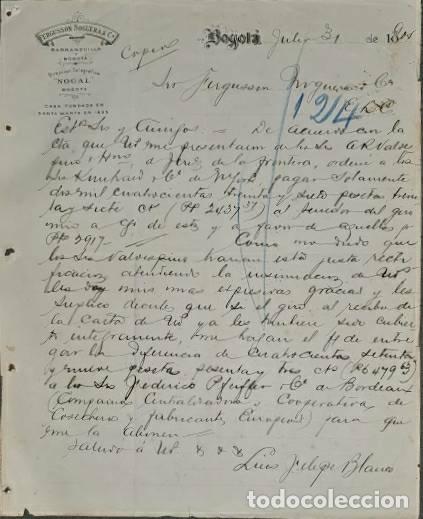 FERGUSSON NOGUERA & Ca.
BARRANQUILLA
BOGOTÁ
Dirección Telegráfica
"NOGAL"
BOGOTÁ
CASA FUNDADA EN
SANTA MARTA EN 1855
Copia
Bogotá Julio 31 de 1
Sr Fergusson Noguera & Ca
124
Estos Srs y Amigos — De acuerdo con la
cta que Uds me presentaron de los Srs A R Valdes
pino & Hno de Jerez de la frontera, ordené a los
Srs & Co de pagar solamente
dos mil cuatrocientas treinta y siete pesetas trein
ta y siete cts (Pts 2437 37) al tenedor del giro
a favor de aquellos p
Pts 2917 — Como no dudo que
los Srs Valdespino haran esta justa recti
ficacion, atendiendo la de Uds
les doy mis mas expresivas gracias y les
suplico decirles que si el giro al recibo de
la Carta de Uds ya les hubiere sido cubier
to integramente, me hagan el f de entre
gar la diferencia de Cuatrocientas setenta
y nueve pesetas sesenta y tres cts (Pts 479 63)
a los Srs Federico Pfeiffer & Co de Bordeaux
(Compañia Cooperativa de
Cosecheros y fabricantes Europeos) para que
me la abonen —
Saludo á Uds
Luis Felipe Blanco
todocoleccion.net